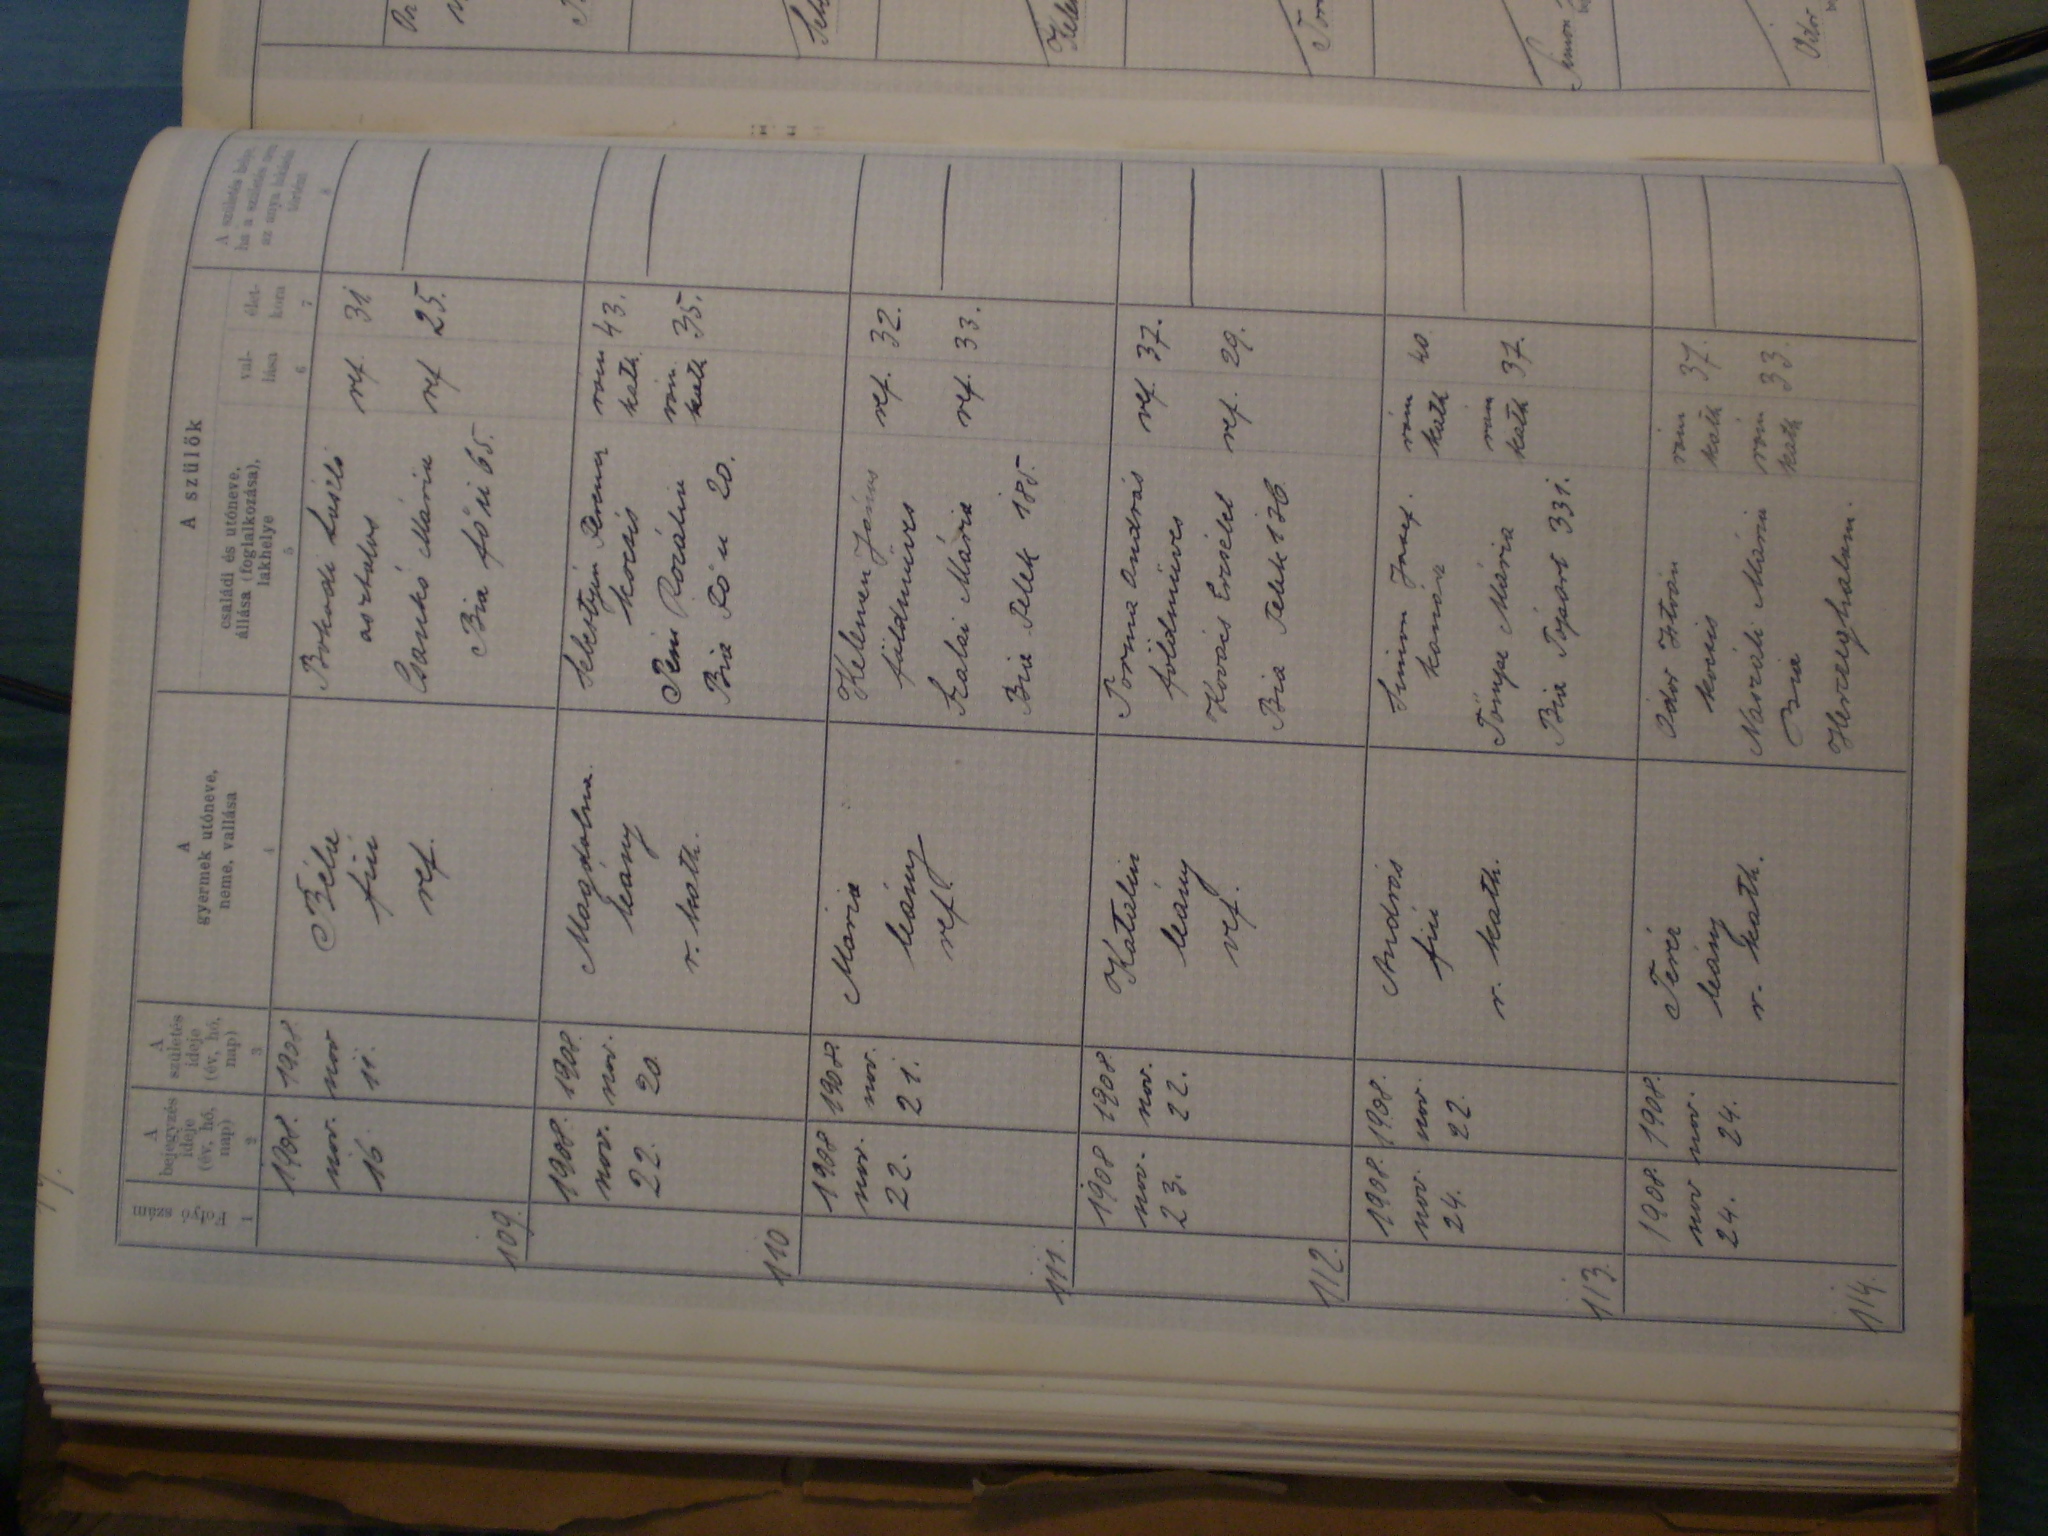 A szülők
Folyó szám
A bejegyzés ideje (év, hó, nap)
A születés ideje (év, hó, nap)
A gyermek utóneve, neme, vallása
családi és utóneve, állása (foglalkozása), lakhelye
val-lása
élet-kora
A születés helye, ha a születés nem az anya lakásán történt
1 2 3 4 5 6 7 8
109.
1908. nov. 16
1908. nov 14.
Béla
fiu
ref.
Bokodi László ref. 31
asztalos
Csankó Mária ref 25.
Bia fő u 65.
110
1908. nov. 22.
1908. nov. 20
Magdolna.
leány
r. kath.
Sebestyén Ferenc róm kath. 43.
kocsis
Rozália róm. kath 35.
Bia Fő u 20.
111.
1908 nov. 22.
1908. nov. 21.
Mária
leány
ref.
Kelemen János ref. 32.
földműves
Szalai Mária ref. 33.
Bia Telek 185.
112.
1908 nov. 23.
1908 nov. 22.
Katalin
leány
ref.
Torma András ref. 37.
földműves
Kovács Erzsébet ref. 29.
Bia Telek 176
113.
1908. nov. 24.
1908. nov. 22.
András
fiu
r. kath.
Simon József. róm kath 40
kanász
Mária róm kath 37.
Bia 331.
114.
1908. nov 24.
1908. nov. 24.
Teréz
leány
r. kath.
Ódor István róm kath 37.
kocsis
Naszáli Mária róm kath 33.
Bia
Herczeghalom.